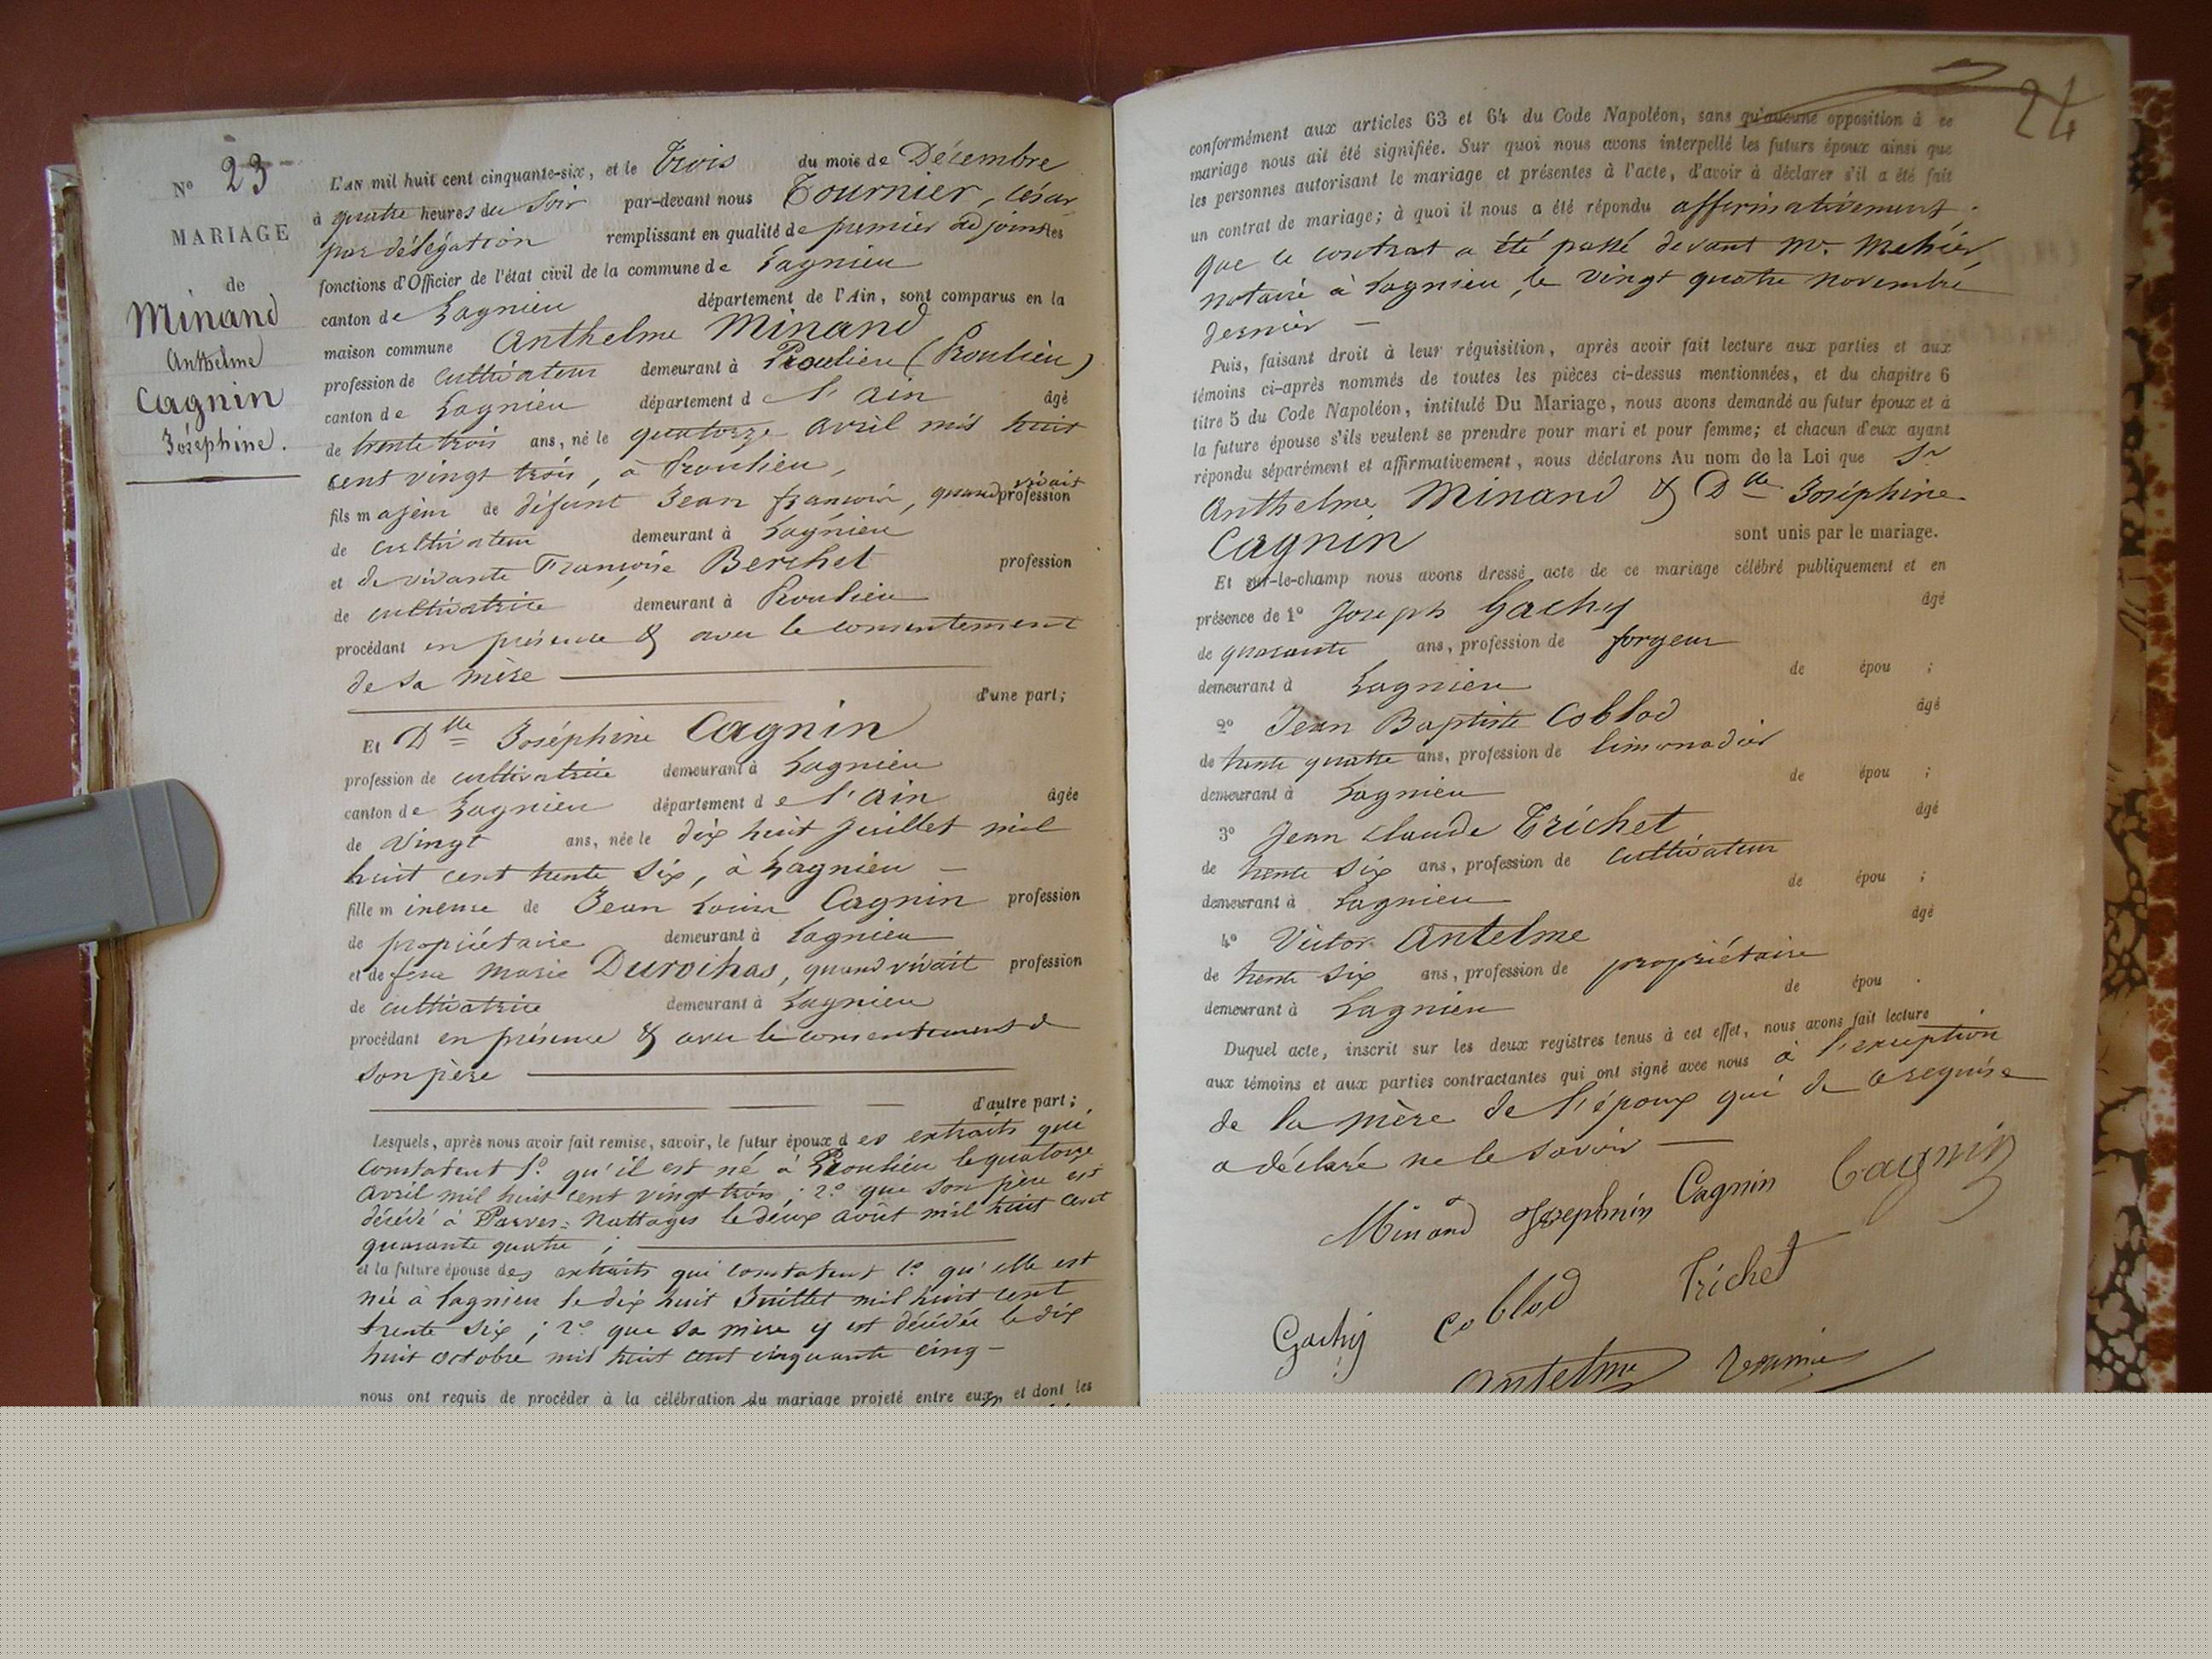 N° 23
MARIAGE
de
Minand
Anthelme
Cagnin
Joséphine.
L'AN mil huit cent cinquante-six, et le Trois du mois de Décembre
à quatre heures du Soir par-devant nous Tournier, César
par délégation remplissant en qualité de premier adjoint les
fonctions d'Officier de l'état civil de la commune de Lagnieu
canton de Lagnieu département de l'Ain, sont comparus en la
maison commune Anthelme Minand
profession de cultivateur demeurant à Proulieu (Proulieu)
canton de Lagnieu département de l'Ain âgé
de trente trois ans, né le quatorze avril mil huit
cent vingt trois, à Proulieu,
fils majeur de défunt Jean françois, quand vivait profession
de cultivateur demeurant à Lagnieu
et de vivante Françoise Berchet profession
de cultivatrice demeurant à Proulieu
procédant en présence & avec le consentement
de sa mère
d'une part;
Et Dlle Joséphine Cagnin
profession de cultivatrice demeurant à Lagnieu
canton de Lagnieu département de l'Ain âgée
de vingt ans, née le dix huit juillet mil
huit cent trente six, à Lagnieu —
fille mineure de Jean Louis Cagnin profession
de propriétaire demeurant à Lagnieu
et de feue Marie Durochas, quand vivait profession
de cultivatrice demeurant à Lagnieu
procédant en présence & avec le consentement de
son père
d'autre part;
Lesquels, après nous avoir fait remise, savoir, le futur époux des extraits qui
constatent 1° qu'il est né à Proulieu le quatorze
avril mil huit cent vingt trois; 2° que son père est
décédé à Parves-Nattages le deux août mil huit cent
quarante quatre;
et la future épouse des extraits qui constatent 1° qu'elle est
née à Lagnieu le dix huit Juillet mil huit cent
trente six; 2° que sa mère y est décédée le dix
huit octobre mil huit cent cinquante cinq —
nous ont requis de procéder à la célébration du mariage projeté entre eux, et dont les
24
conformément aux articles 63 et 64 du Code Napoléon, sans qu'aucune opposition à ce
mariage nous ait été signifiée. Sur quoi nous avons interpellé les futurs époux ainsi que
les personnes autorisant le mariage et présentes à l'acte, d'avoir à déclarer s'il a été fait
un contrat de mariage; à quoi il nous a été répondu affirmativement.
que le contrat a été passé devant Me Mehier,
notaire à Lagnieu, le vingt quatre novembre
dernier —
Puis, faisant droit à leur réquisition, après avoir fait lecture aux parties et aux
témoins ci-après nommés de toutes les pièces ci-dessus mentionnées, et du chapitre 6
titre 5 du Code Napoléon, intitulé Du Mariage, nous avons demandé au futur époux et à
la future épouse s'ils veulent se prendre pour mari et pour femme; et chacun d'eux ayant
répondu séparément et affirmativement, nous déclarons Au nom de la Loi que Sr
Anthelme Minand & Dlle Joséphine
Cagnin sont unis par le mariage.
Et sur-le-champ nous avons dressé acte de ce mariage célébré publiquement et en
présence de 1° Joseph Gachy âgé
de quarante ans, profession de forgeur
demeurant à Lagnieu de épou ;
2° Jean Baptiste Coblod âgé
de trente quatre ans, profession de limonadier
demeurant à Lagnieu de épou ;
3° Jean Claude Trichet âgé
de trente six ans, profession de cultivateur
demeurant à Lagnieu de épou ;
4° Victor Antelme âgé
de trente six ans, profession de propriétaire
demeurant à Lagnieu de épou .
Duquel acte, inscrit sur les deux registres tenus à cet effet, nous avons fait lecture
aux témoins et aux parties contractantes qui ont signé avec nous à l'exception
de la mère de l'époux qui de ce requise
a déclaré ne le savoir —
Minand Josephin Cagnin Cagnin
Gachy Coblod Trichet
Antelme